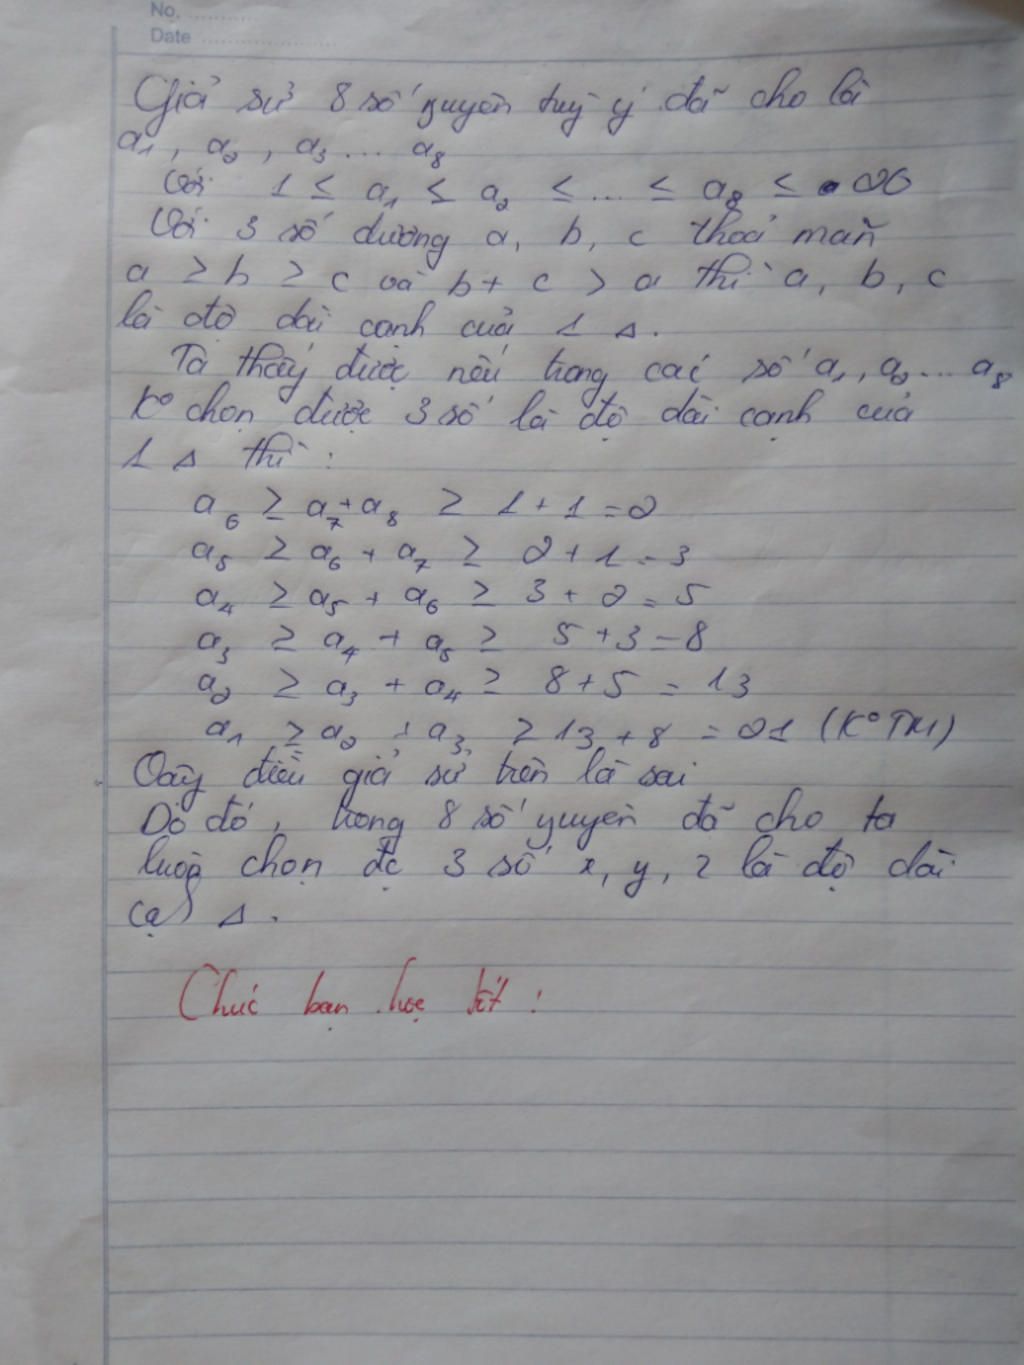 No. ............
Date .......................
Giả sử 8 số nguyên tuỳ ý đã cho là
a1, a2, a3 ... a8
Với 1 ≤ a1 ≤ a2 ≤ ... ≤ a8 ≤ 20
Với 3 số dương a, b, c thoả mãn
a ≥ b ≥ c và b + c > a thì a, b, c
là độ dài cạnh của 1 Δ.
Ta thấy được nếu trong các số a1, a2 ... a8
K° chọn được 3 số là độ dài cạnh của
1 Δ thì :
a6 ≥ a7 + a8 ≥ 1 + 1 = 2
a5 ≥ a6 + a7 ≥ 2 + 1 = 3
a4 ≥ a5 + a6 ≥ 3 + 2 = 5
a3 ≥ a4 + a5 ≥ 5 + 3 = 8
a2 ≥ a3 + a4 ≥ 8 + 5 = 13
a1 ≥ a2 + a3 ≥ 13 + 8 = 21 (K° TM)
Vậy điều giả sử trên là sai
Do đó, trong 8 số nguyên đã cho ta
luôn chọn đc 3 số x, y, z là độ dài
cạ Δ.
Chúc bạn học tốt !